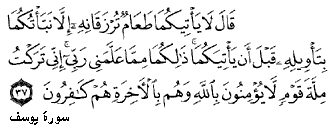 قَالَ لَا يَأْتِيكُمَا طَعَامٌ تُرْزَقَانِهِ إِلَّا نَبَّأْتُكُمَا
بِتَأْوِيلِهِ قَبْلَ أَن يَأْتِيَكُمَا ذَلِكُمَا مِمَّا عَلَّمَنِي رَبِّي إِنِّي تَرَكْتُ
مِلَّةَ قَوْمٍ لَّا يُؤْمِنُونَ بِاللَّهِ وَهُم بِالْآخِرَةِ هُمْ كَافِرُونَ ٣٧
سورة يوسف